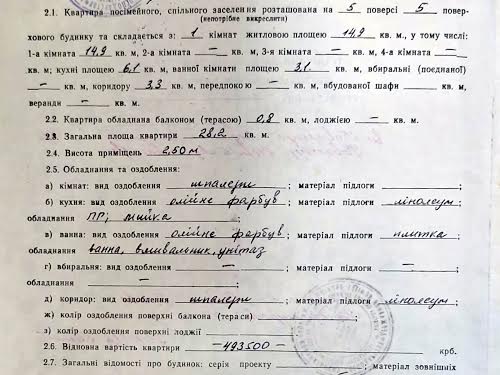 2.1. Квартира посімейного, спільного заселення розташована на 5 поверсі 5 повер-
(непотрібне викреслити)
хового будинку та складається з: 1 кімнат житловою площею 14,9 кв. м., у тому числі:
1-а кімната 14,9 кв. м, 2-а кімната — кв. м, 3-я кімната — кв. м, 4-а кімната —
кв. м; кухні площею 6,1 кв. м, ванної кімнати площею 3,1 кв. м, вбиральні (поєднаної)
— кв. м, коридору 3,3 кв. м, передпокою — кв. м, вбудованої шафи — кв. м,
веранди — кв. м.
2.2. Квартира обладнана балконом (терасою) 0,8 кв. м, лоджією — кв. м.
2.3. Загальна площа квартири 28,2 кв. м.
2.4. Висота приміщень 2,50 м
2.5. Обладнання та оздоблення:
а) кімнат: вид оздоблення шпалери; матеріал підлоги ;
б) кухня: вид оздоблення олійне фарбув; матеріал підлоги лінолеум;
обладнання ПГ; мийка ;
в) ванна: вид оздоблення олійне фарбув; матеріал підлоги плитка;
обладнання ванна, вмивальник, унітаз
г) вбиральня: вид оздоблення — ; матеріал підлоги — ;
обладнання — ;
д) коридор: вид оздоблення шпалери; матеріал підлоги лінолеум;
ж) колір оздоблення поверхні балкона (тераси) ;
з) колір оздоблення поверхні лоджії .
2.6. Відновна вартість квартири —493500— крб.
2.7. Загальні відомості про будинок: серія проекту ; матеріал зовнішніх